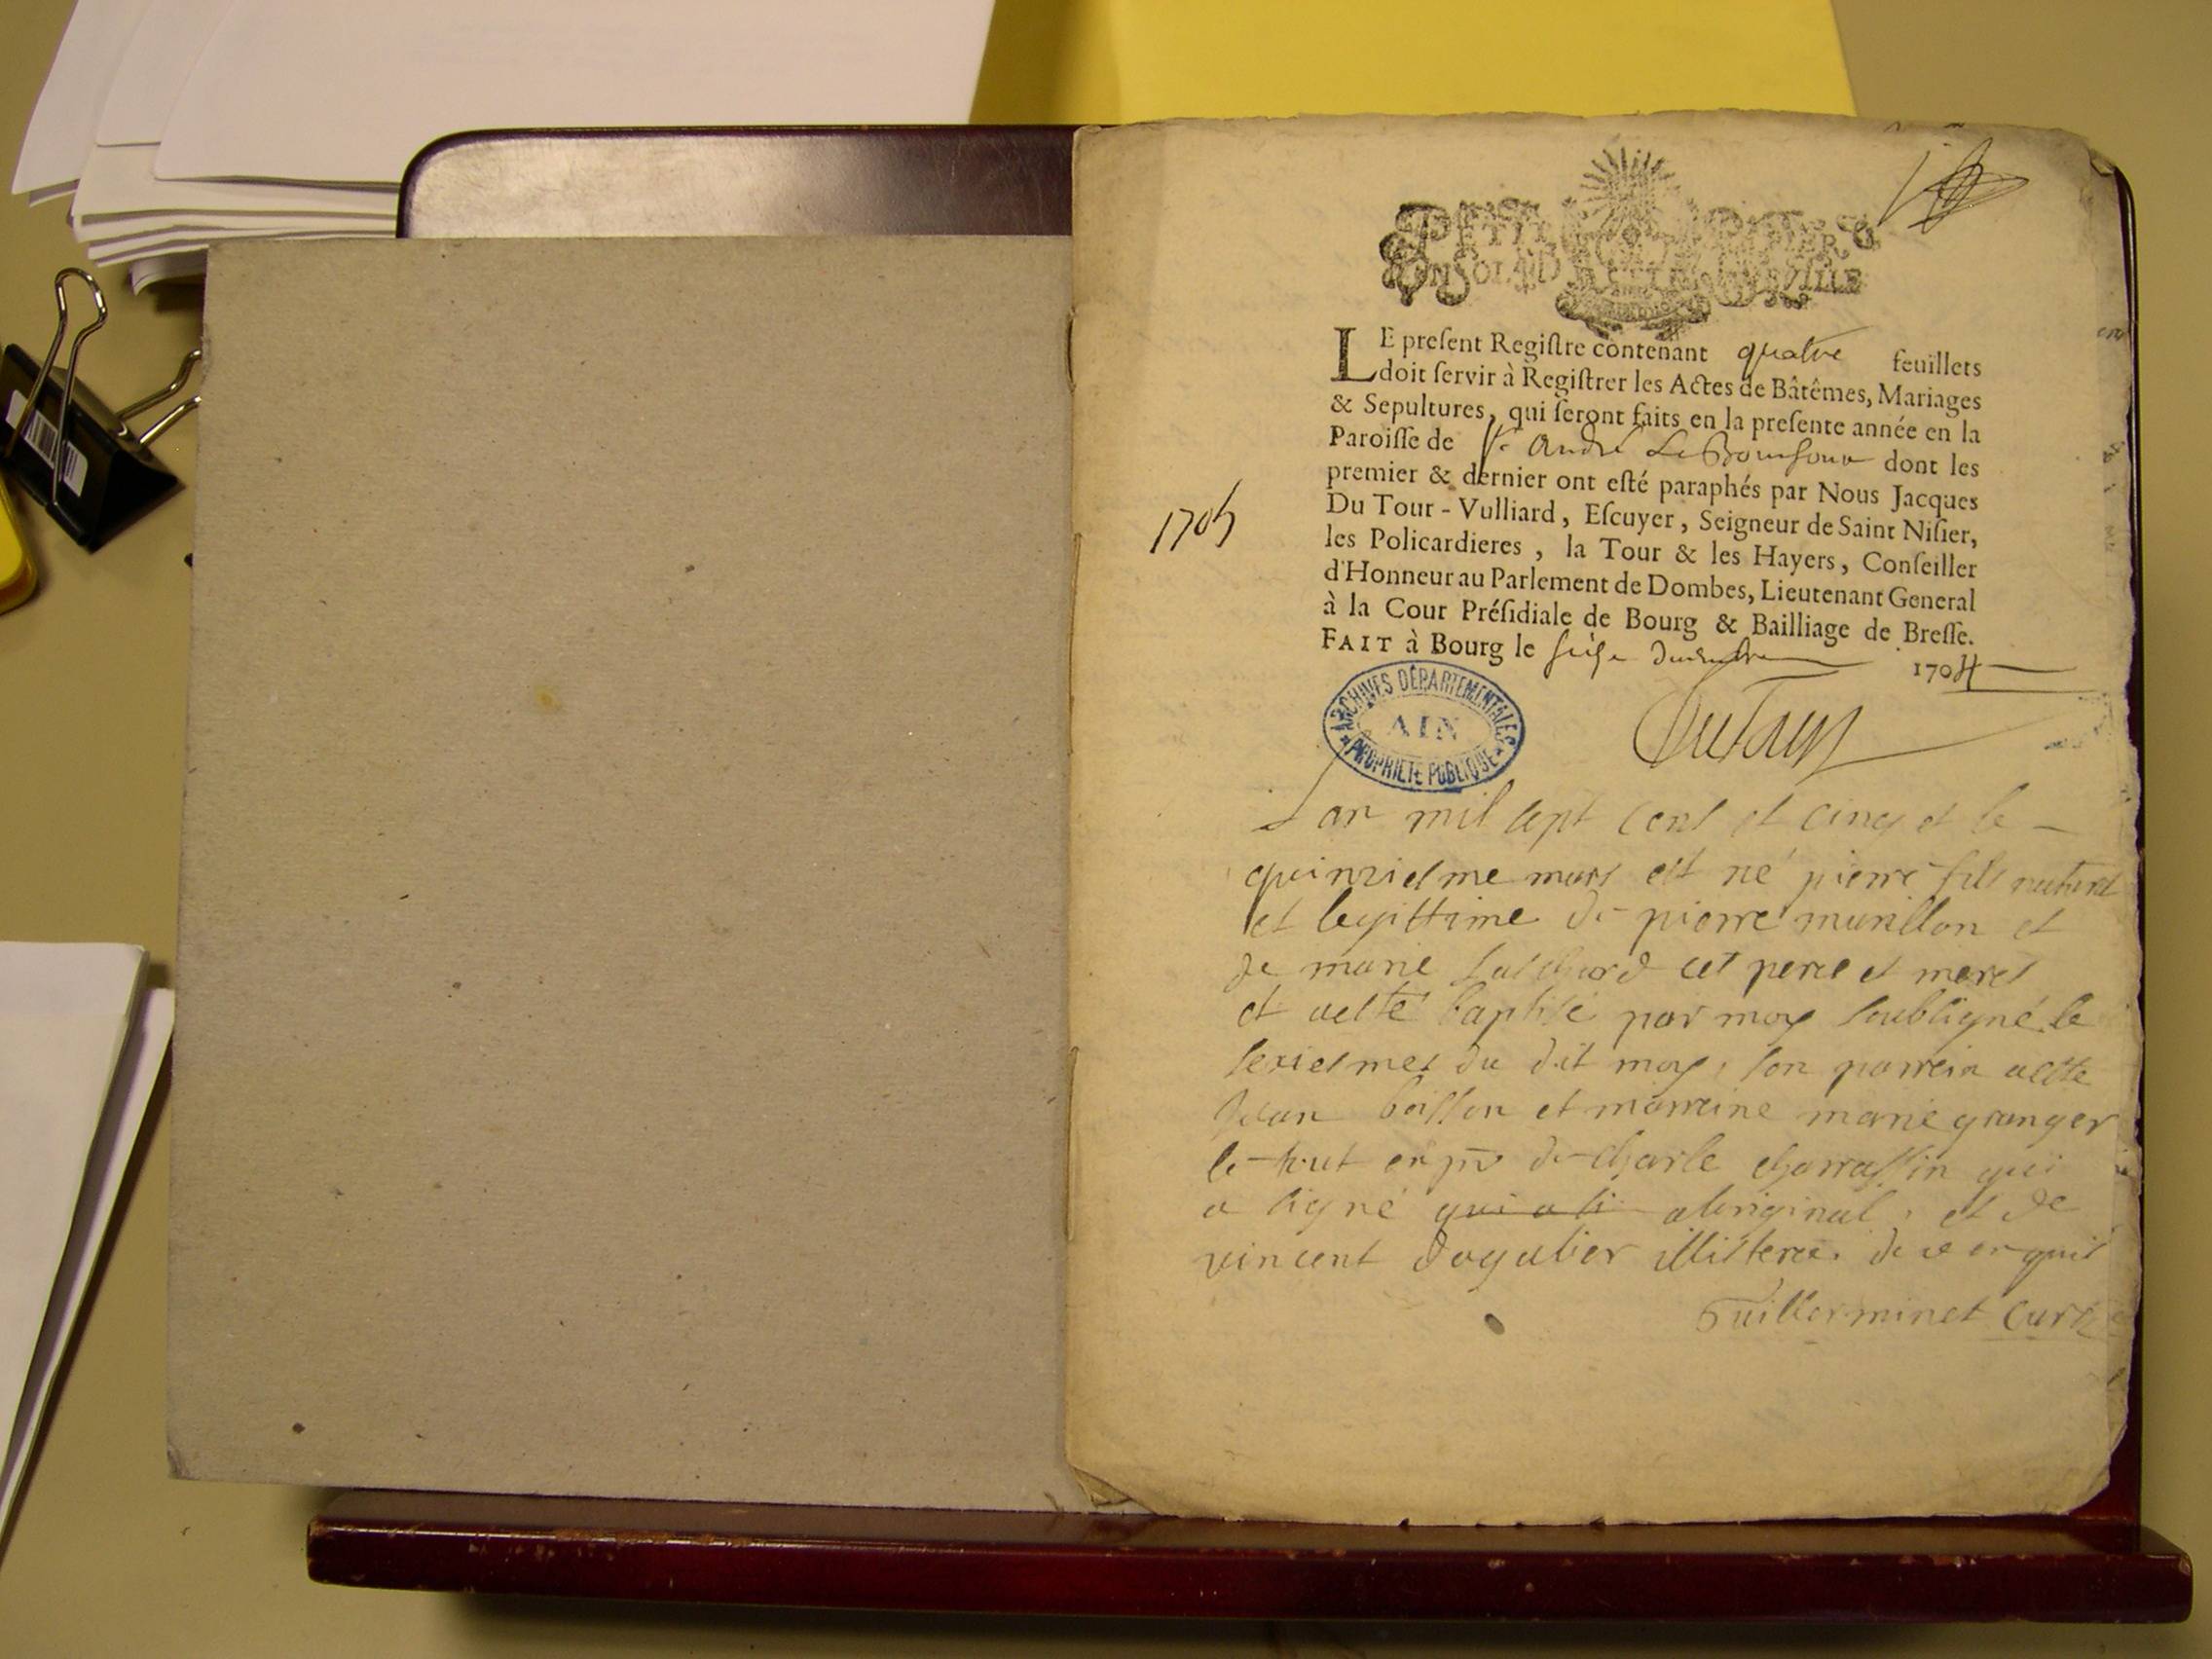 PETIT PAPIER
UN SOL LD ACTE LE VILLE
LE preſent Regiſtre contenant quatre feuillets
doit ſervir à Regiſtrer les Actes de Bâtêmes, Mariages
& Sepultures, qui ſeront faits en la preſente année en la
Paroiſſe de St andré Le Bouchoux dont les
premier & dernier ont eſté paraphés par Nous Jacques
Du Tour - Vulliard, Eſcuyer, Seigneur de Saint Niſier,
les Policardieres, la Tour & les Hayers, Conſeiller
d'Honneur au Parlement de Dombes, Lieutenant General
à la Cour Préſidiale de Bourg & Bailliage de Breſſe.
FAIT à Bourg le seize decembre 1704
1705
ARCHIVES DÉPARTEMENTALES
AIN
PROPRIÉTÉ PUBLIQUE
DuTour
Lan mil sept cent et cinq et le
quinziesme mars est né pierre fils naturel
et legittime de pierre murillon et
de marie cet pere et meres
et aesté baptisé par moy soubsigné le
seziesmes du dit moy, son parrein aesté
Jean boisson et marreine marie granger
le tout en pñ de charle charrassin qui
a signé qui a si aloriginal, et de
vincent dogabier illisteree, de ce enquis
Guillerminet Curé